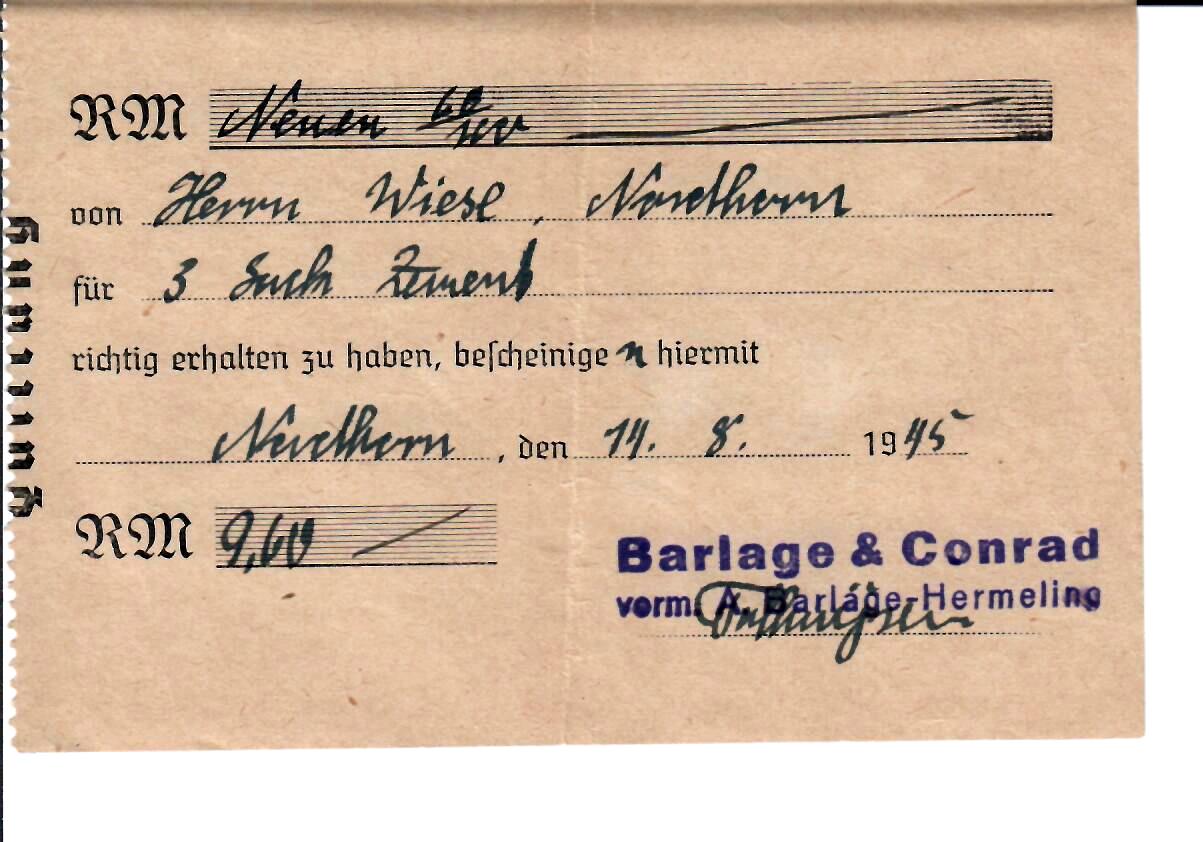 RM Neuen 60/100
von Herrn Wiese, Nordhorn
für 3 Sack Zement
richtig erhalten zu haben, bescheinige n hiermit
Nordhorn, den 14. 8. 1945
RM 9,60
Barlage & Conrad
vorm. A. Barlage-Hermeling